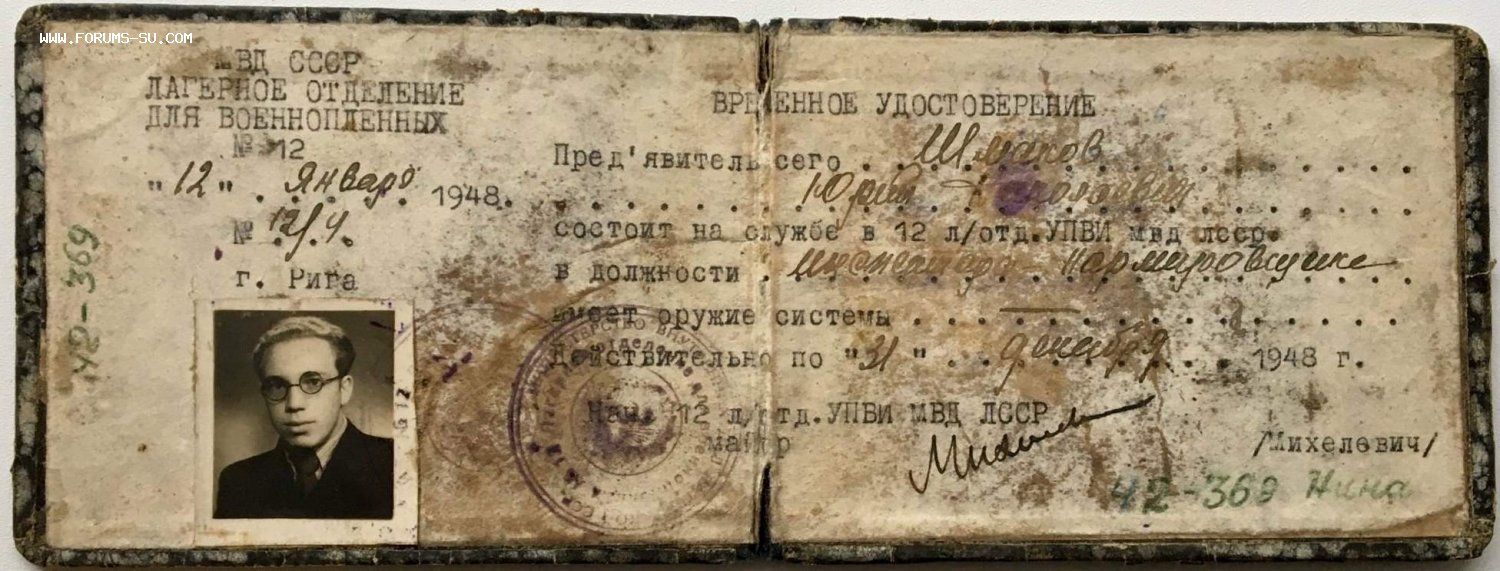 WWW.FORUMS-SU.COM
МВД СССР
ЛАГЕРНОЕ ОТДЕЛЕНИЕ
ДЛЯ ВОЕННОПЛЕННЫХ
№ 12
"12" Января 1948.
№ 12/4.
г. Рига
42-369
ВРЕМЕННОЕ УДОСТОВЕРЕНИЕ
Пред'явитель сего Шмаков
Юрий
состоит на службе в 12 л/отд.УПВИ мвд лсср.
в должности инспектора нормировщика
имеет оружие системы —
Действительно по "31" декабря 1948 г.
Нач. 12 л/отд.УПВИ МВД ЛССР
майор /Михелевич/
42-369 Нина